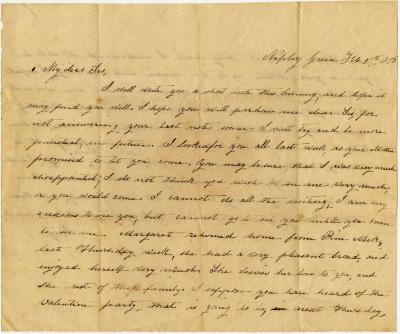 My dear Sis,
I will write you a short note this Evening, and hope it
may find you well. I hope you will pardon me dear Sis for
not answering your last note sooner. I will try and be more
punctual, in future. I looked for you all last week, as your Mother
promised to let you come. You may be sure that I was very much
disappointed; I do not think you wish to see me very much,
or you would come. I cannot do all the visiting. I am very
anxious to see you, but cannot go to see you until you come
to see me. Margaret returned home from Pine
last Thursday week, she had a very pleasant time, and
enjoyed herself very much. She desires her love to you, and
the rest of the family. I suppose you have heard of the
Valentine party, that is going to be next Thursday,